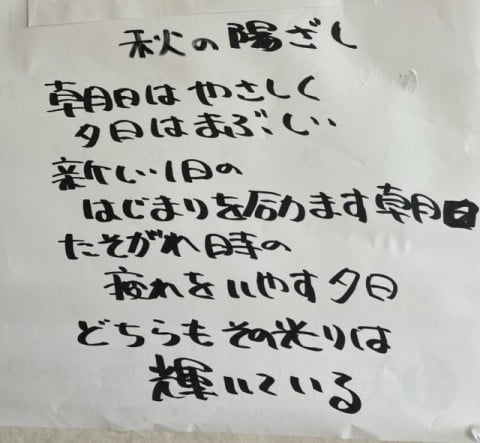 秋の陽ざし
朝日はやさしく
夕日はまぶしい
新しい1日の
はじまりを励ます朝日
たそがれ時の
疲れをいやす夕日
どちらもその光りは
輝いている